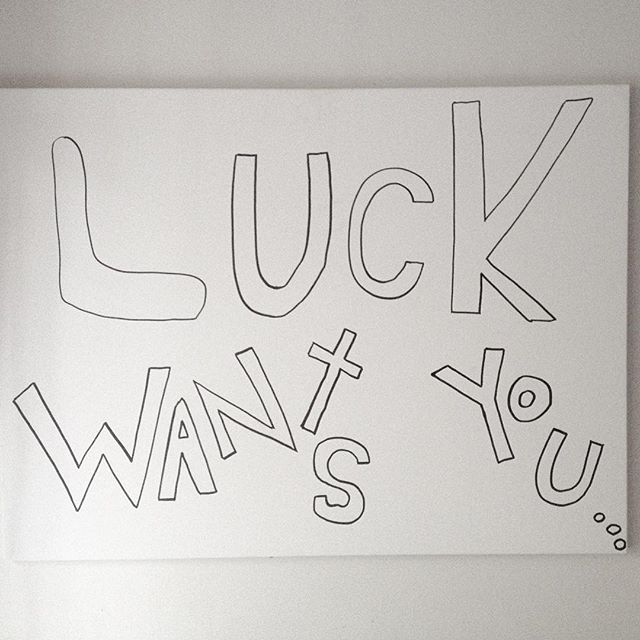 LUCK
WANtS YOU...